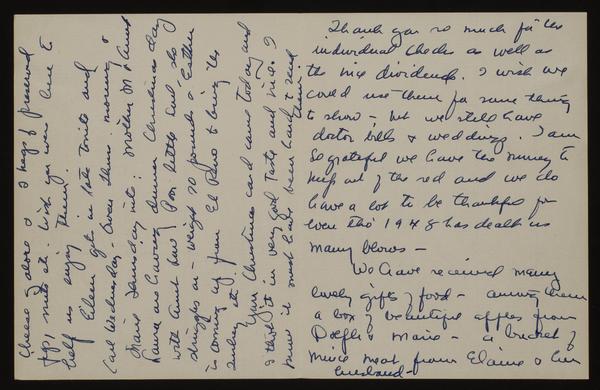 Thank you so much for the
individual checks as well as
the nice dividends. I wish we
could use them for some thing
to show - but we still have
doctor bills & weddings. I am
so grateful we have the money to
keep out of the red and we do
have a lot to be thankful for
even tho' 1948 has dealt us
many blows -
We have received many
lovely gifts of food - among them
a box of beautiful apples from
& Marie - a bucket of
mince meat from Elaine & her
husband -
cheese & also 2 kegs of preserved
figs, nuts etc. Wish you were here to
help us enjoy them.
Eileen got in late Tonite and
Carl Wednesday - Gwen thurs. morning &
Travis Thursday nite: Mother M & Aunt
Laura are having dinner Christmas day
with Aunt Lou! Poor little soul she
struggles on - weighs 70 pounds & Esther
is coming up from El Reno to bring the
turkey etc.
Your Christmas card came today and
I think it in very good taste and nice. I
know it must have been hard to send
them.